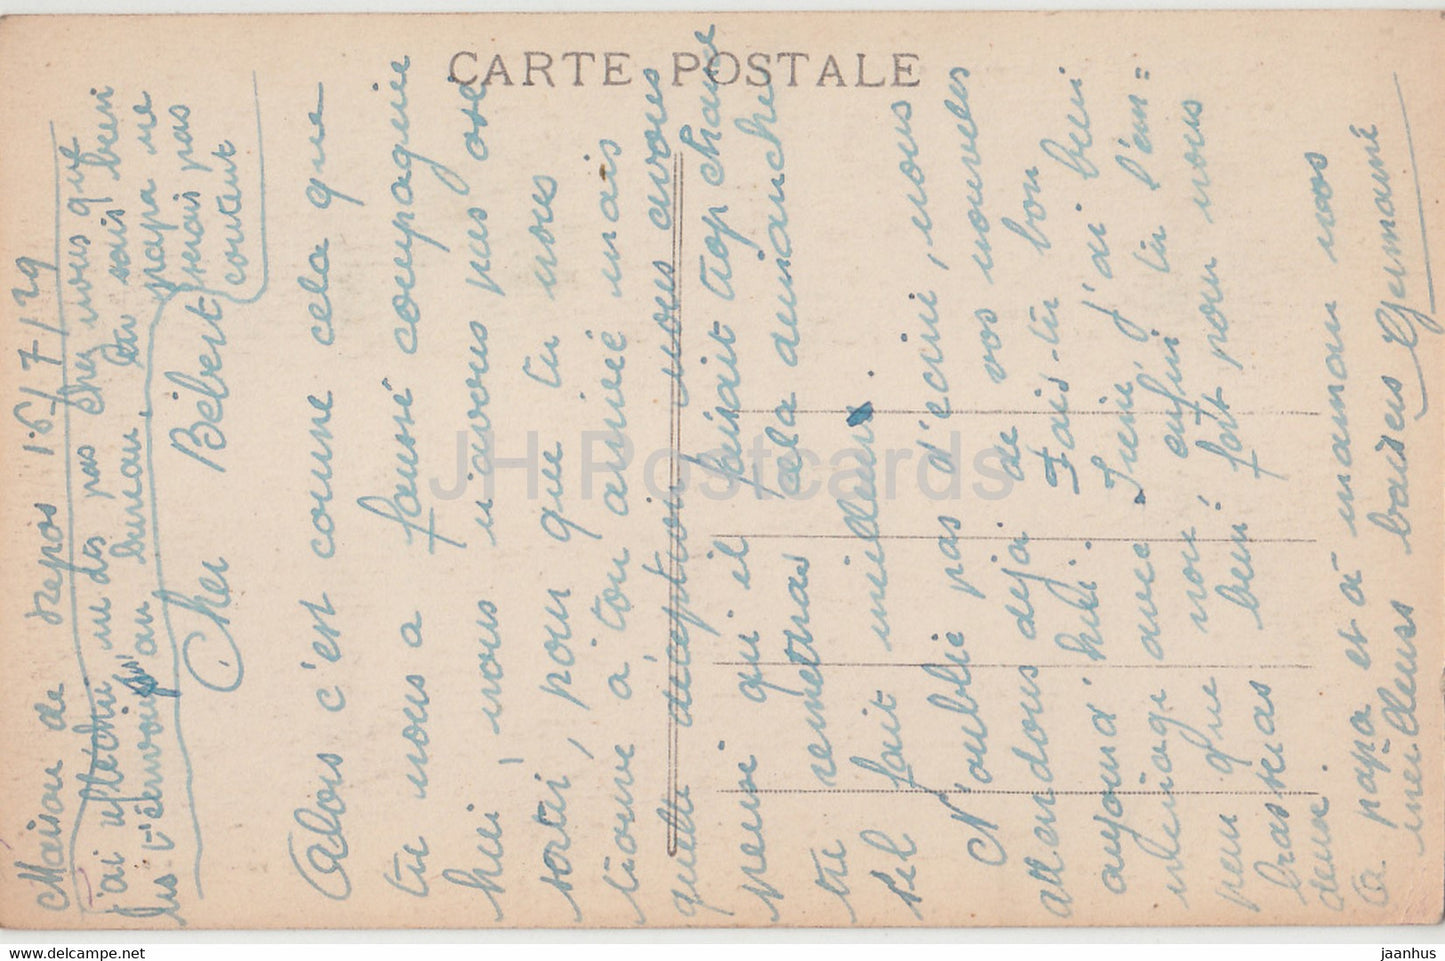 CARTE POSTALE
Maison de repos 15/7/29
j'ai réfléchie ne dés pas chez nous que
je t'envoi au bureau, tu sais bien
papa ne
serais pas
content
Cher Bébert
Alors c'est comme cela que
tu nous a faussé compagnie
hier, nous n'avons pas osé
sortir, pour que tu nous
trouve à ton arrivé mais
quelle déception nous avons
pensé qu'il faisait trop chaud
tu remettras cela dimanche
s'il fait meilleur.
N'oublie pas d'ecrire, nous
attendons deja de vos nouvelles
aujourd'hui. Fais-tu bon
ménage avec Irené j'ai bien
peur que non, enfin tu l'em=
brasseras bien fort pour nous
deux.
a papa et à maman nos
meilleurs baisers Germaine
JH Postcards
https://www.delcampe.net
jaanhus